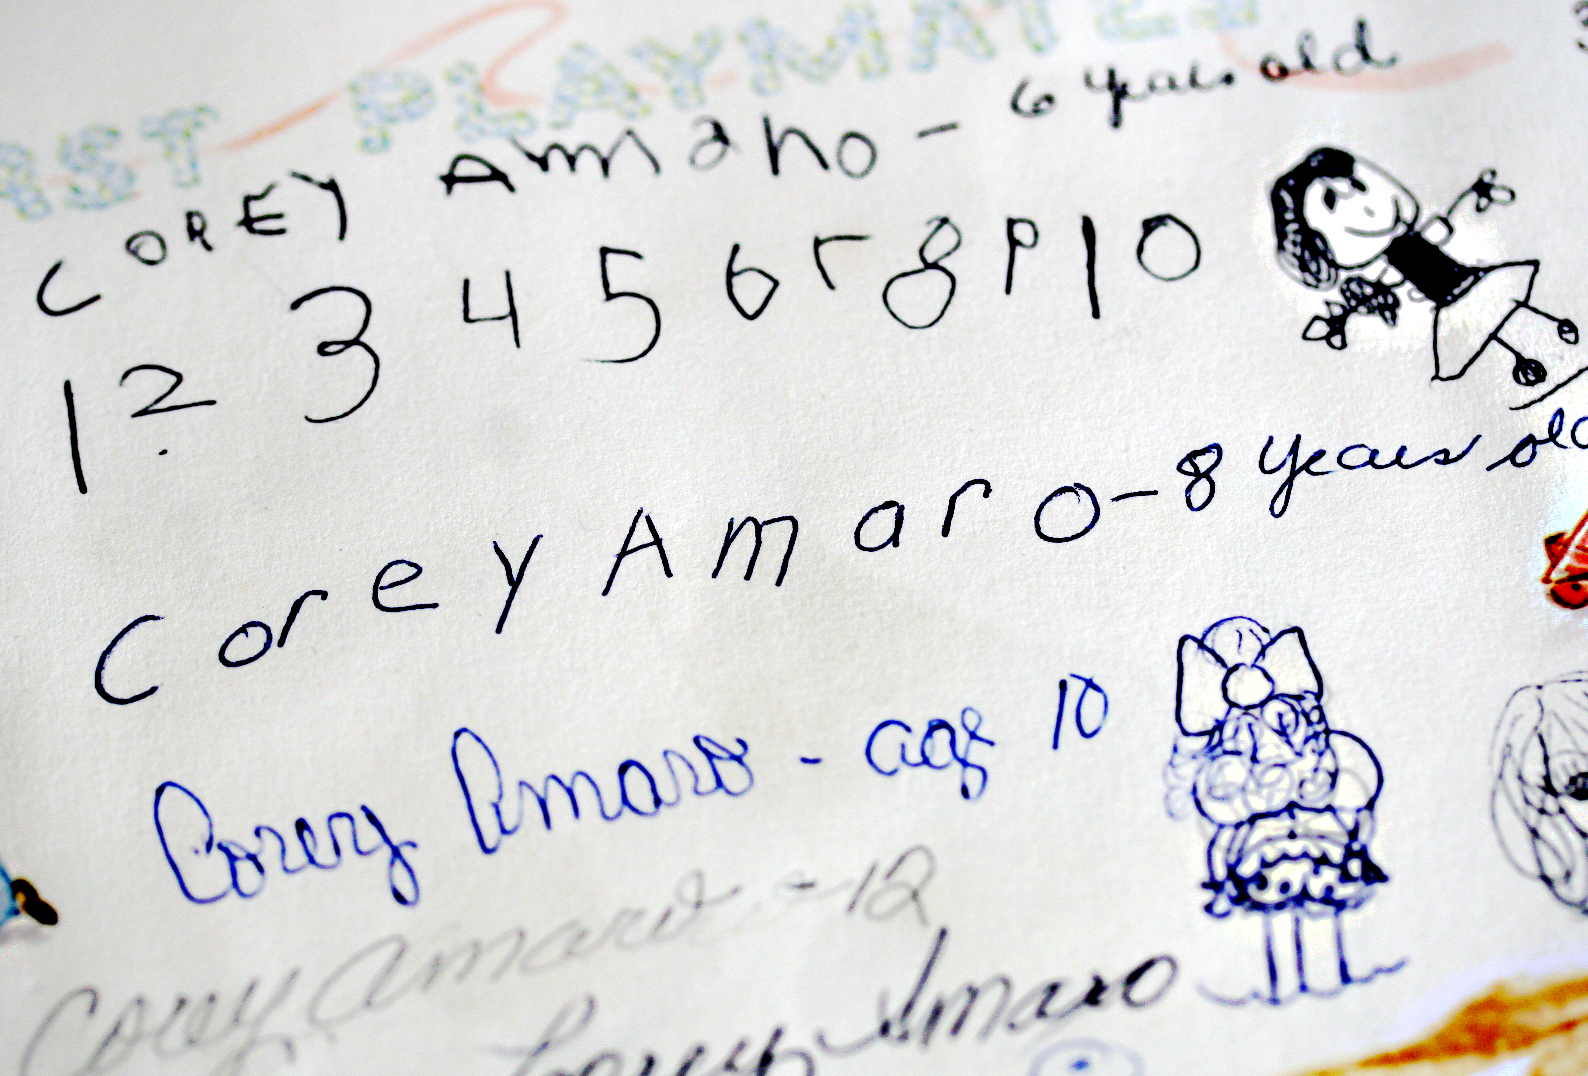 ST PLAYMATES
COREY Amaro - 6 years old
1 2 3 4 5 6 7 8 9 10
Corey Amaro - 8 years old
Corey Amaro - age 10
Corey Amaro - 12
Corey Amaro